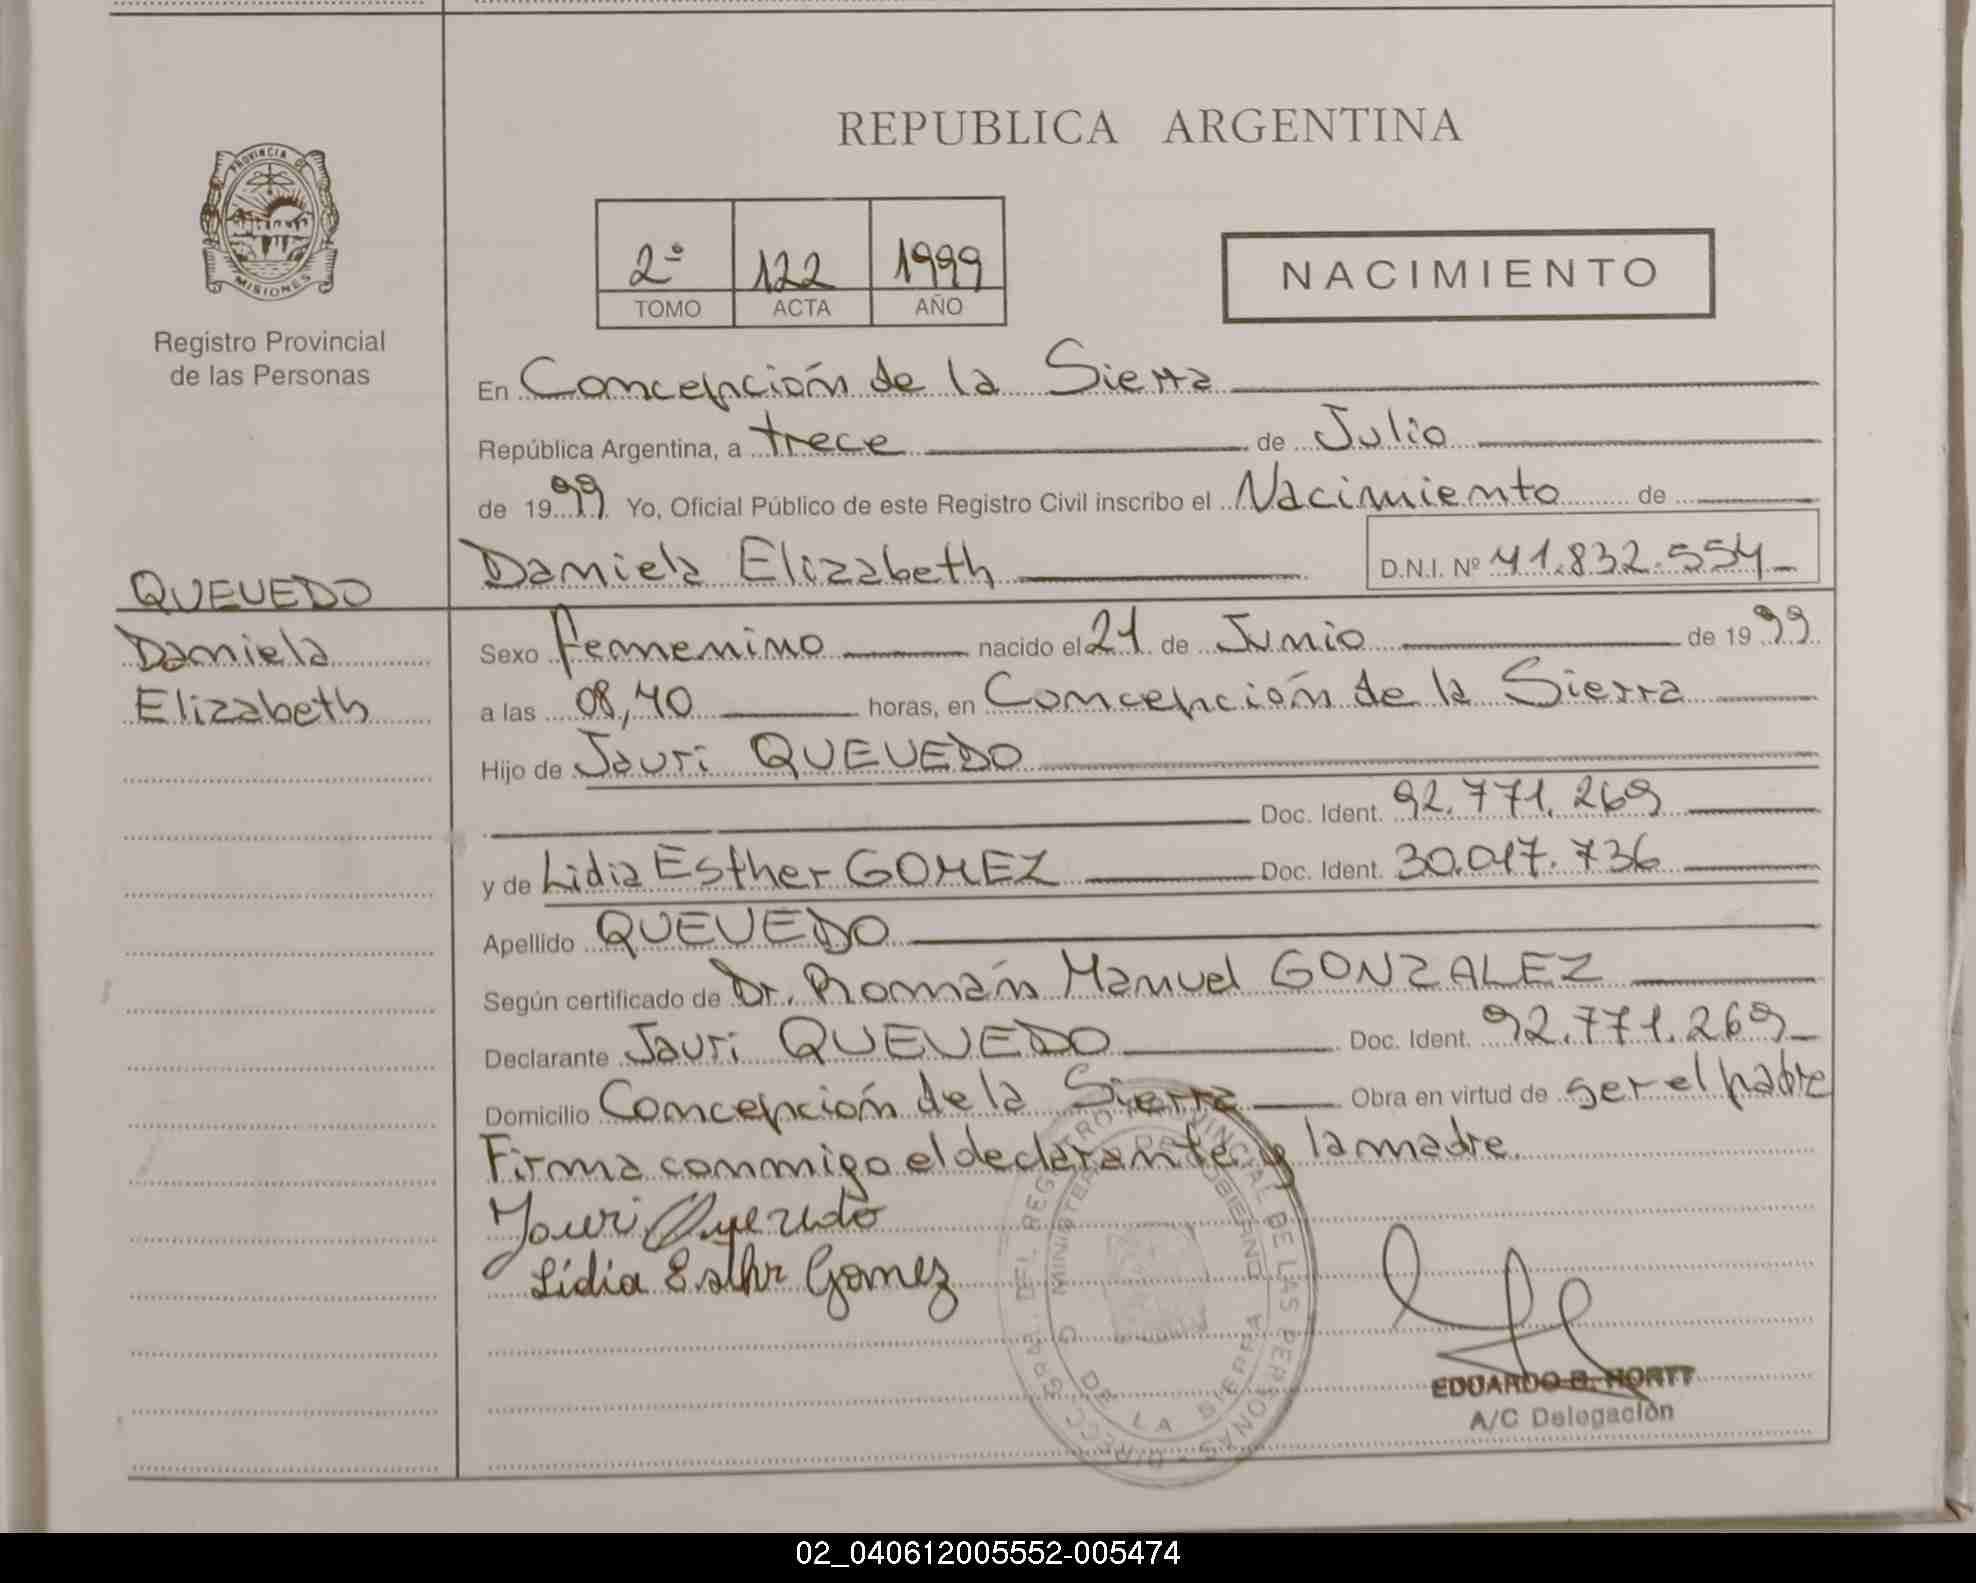 REPUBLICA ARGENTINA
PROVINCIA DE
MISIONES
Registro Provincial
de las Personas
2º 122 1999
TOMO ACTA AÑO
NACIMIENTO
En Concepción de la Sierra
República Argentina, a trece de Julio
de 1999 Yo, Oficial Público de este Registro Civil inscribo el Nacimiento de
Daniela Elizabeth D.N.I. Nº 41.832.554
QUEVEDO
Daniela
Elizabeth
Sexo femenino nacido el 21 de Junio de 1999
a las 08,40 horas, en Concepción de la Sierra
Hijo de Jauri QUEVEDO
Doc. Ident. 92.771.269
y de Lidia Esther GOMEZ Doc. Ident. 30.017.736
Apellido QUEVEDO
Según certificado de Dr. Román Manuel GONZALEZ
Declarante Jauri QUEVEDO Doc. Ident. 92.771.269
Domicilio Concepción de la Sierra Obra en virtud de ser el padre
Firma conmigo el declarante y la madre.
Jauri Quevedo
Lidia Esther Gomez
DIRECC. GRAL. DEL REGISTRO PROVINCIAL DE LAS PERSONAS
MINISTERIO DE GOBIERNO
DE LA SIERRA
EDUARDO B. HORTT
A/C Delegación
02_040612005552-005474